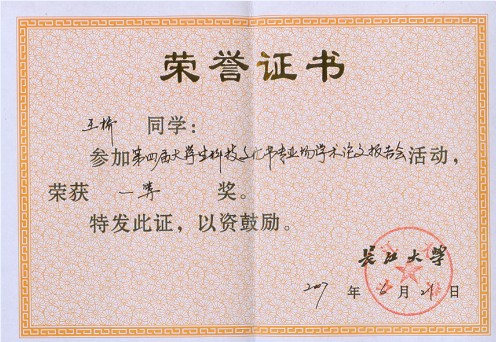 荣誉证书
王桥 同学:
参加第四届大学生科技文化节专业场学术论文报告会活动，
荣获 一等 奖。
特发此证，以资鼓励。
长江大学
2007 年 月 21 日